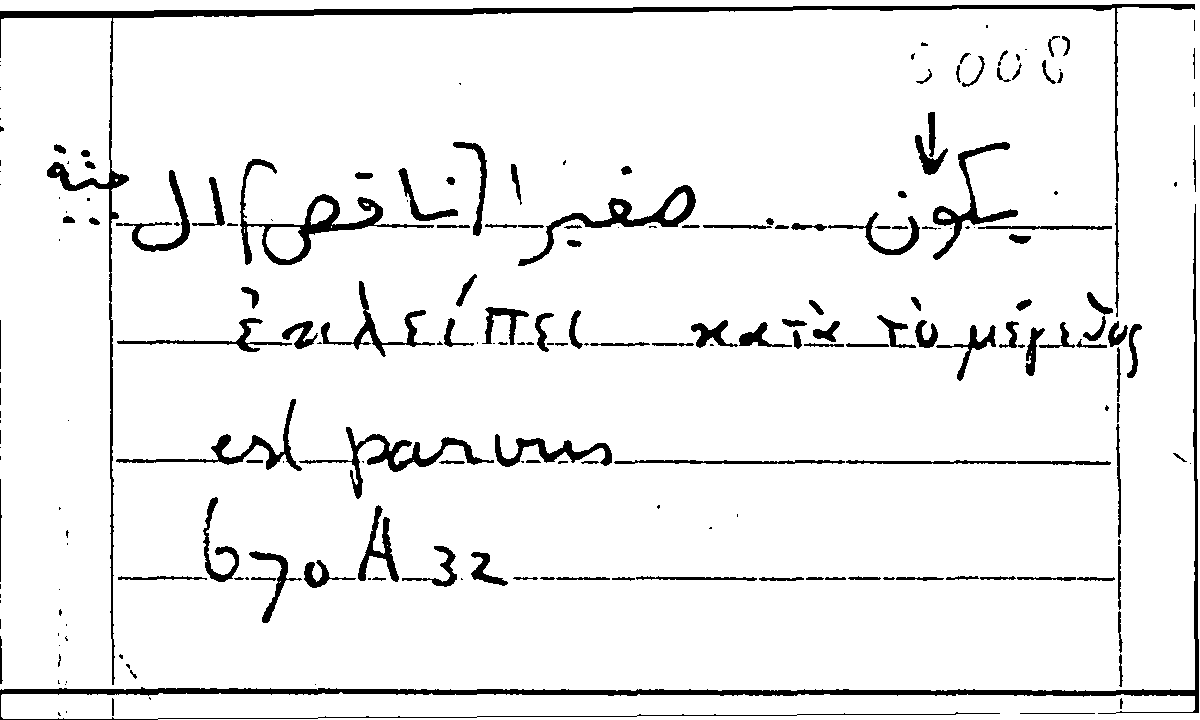 5008
↓
يكون ... صغيرا [ناقص] الجثة ...
ἐκλείπει κατὰ τὸ μέγεθος
est parvus
670 A 32